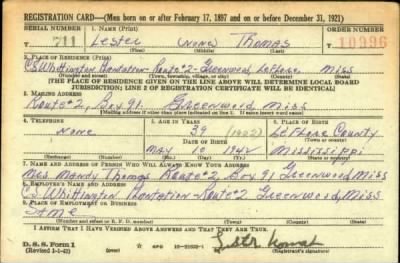 REGISTRATION CARD—(Men born on or after February 17, 1897 and on or before December 31, 1921)
SERIAL NUMBER 1. NAME (Print) ORDER NUMBER
T 711 Lester (none) Thomas T 10996
(First) (Middle) (Last)
2. PLACE OF RESIDENCE (Print)
Whittington Plantation-Route#2-Greenwood, Leflore Miss
(Number and street) (Town, township, village, or city) (County) (State)
[THE PLACE OF RESIDENCE GIVEN ON THE LINE ABOVE WILL DETERMINE LOCAL BOARD
JURISDICTION; LINE 2 OF REGISTRATION CERTIFICATE WILL BE IDENTICAL]
3. MAILING ADDRESS
Route#2, Box 91. Greenwood, Miss
[Mailing address if other than place indicated on line 2. If same insert word same]
4. TELEPHONE 5. AGE IN YEARS 6. PLACE OF BIRTH
None 39 (1902) Leflore County
DATE OF BIRTH (Town or county)
May 10 1942 Mississippi
(Mo.) (Day) (Yr.) (State or country)
7. NAME AND ADDRESS OF PERSON WHO WILL ALWAYS KNOW YOUR ADDRESS
Mrs Mandy Thomas Route#2 Box 91 Greenwood, Miss
8. EMPLOYER'S NAME AND ADDRESS
Whittington Plantation-Route#2 Greenwood, Miss
9. PLACE OF EMPLOYMENT OR BUSINESS
Same
(Number and street or R. F. D. number) (Town) (County) (State)
I AFFIRM THAT I HAVE VERIFIED ABOVE ANSWERS AND THAT THEY ARE TRUE.
D. S. S. Form 1
(Revised 1-1-42) (Registrant's signature)